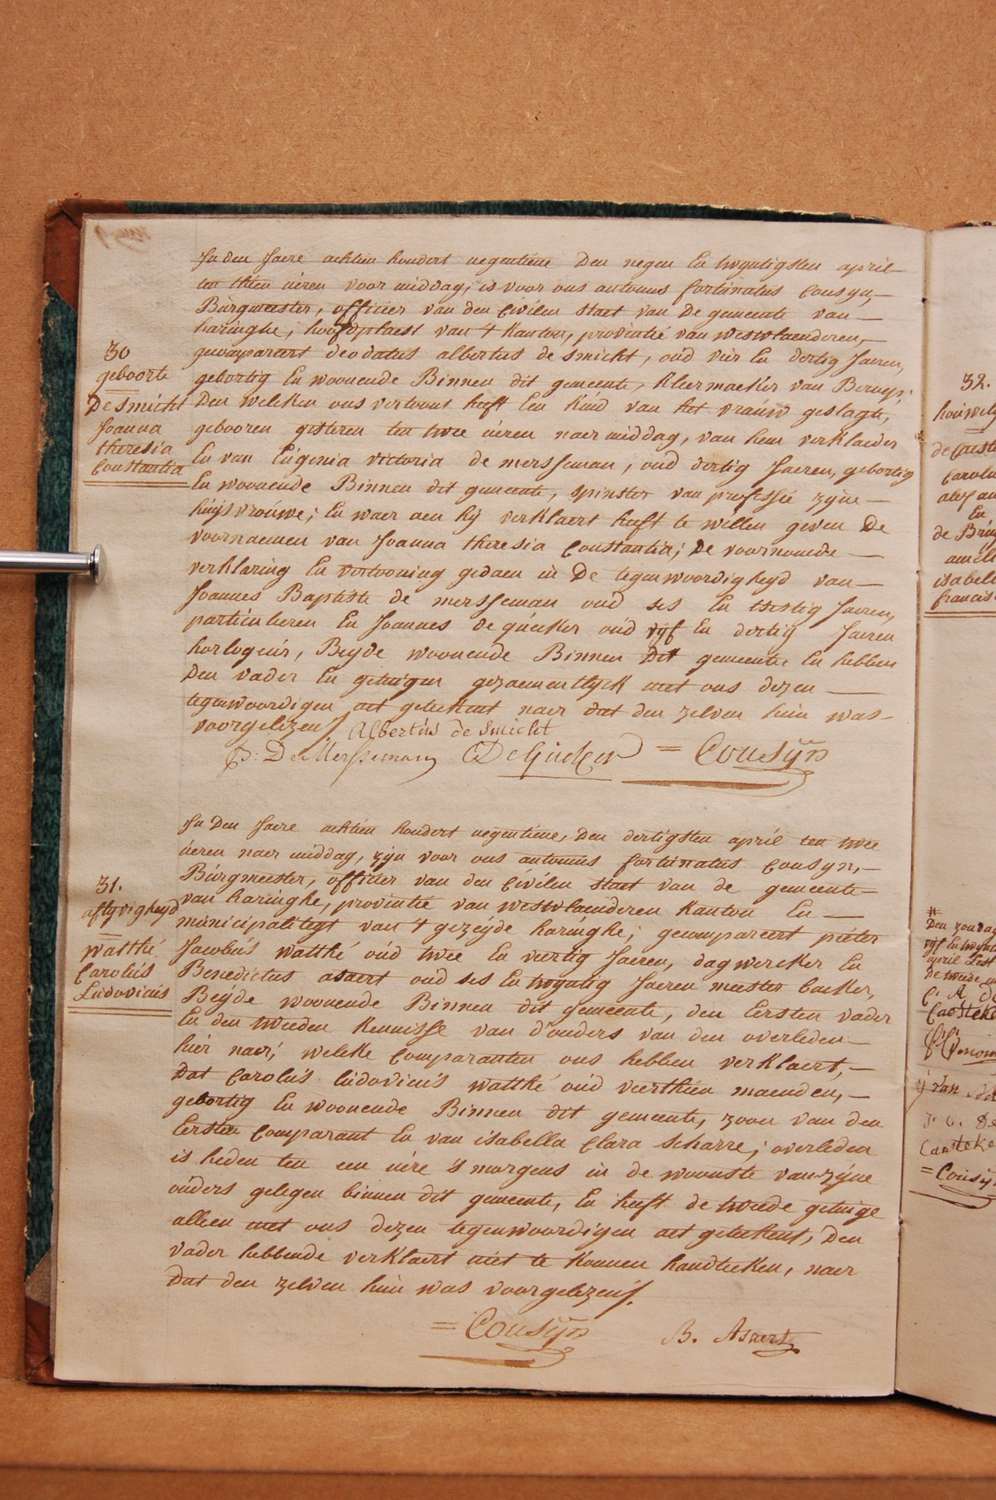 30
geboorte
De Smicht
Joanna
theresia
Constantia
In den Jaere achtien hondert negentiene Den negen En twyntigsten april
ten thien ueren voor middag, is voor ons antonius fortunatus Cousyn,
Burgmeester, officier van den Civilen staet van de gemeente van
haringhe, hoofdplaest van 't Kanton, provintie van westvlaenderen,
gecompareert deodatus albertus de smicht, oud vier En dertig Jaeren,
gebortig En woonende Binnen dit gemeente, kleermaeker van Beroep;
Den welcken ons vertoont heeft Een kind van het vrauw geslagte,
gebooren gisteren ten twee uren naer middag, van hem verklaerder
En van Eugenia victoria de mersseman, oud dertig Jaeren, gebortig
En woonende Binnen dit gemeente, spinster van professie zyne
huysvrouwe; En waer aen hy verklaert heeft te willen geven De
voornaemen van Joanna theresia Constantia; De voornoemde
verklaring En vertooning gedaen in De tegenwoordigheyd van
Joannes Baptiste de mersseman oud ses En tsestig Jaeren,
particulieren En Joannes de quecker oud vyf En dertig Jaeren
horlogeur, Beyde woonende Binnen Dit gemeente En hebben
Den vader En getuigen gezaementlyck met ons dezen
tegenwoordigen act geteekent naer dat den zelven hun was
voorgelezen/. Albertus de Smicht
J: De Mersseman De Quecker = Cousÿn
31.
aflyvigheyd
watthé
Carolus
Ludovicus
In Den Jaere achtien hondert negentiene, Den dertigsten april ten twee
ueren naer middag, zyn voor ons antonius fortunatus Cousyn,
Burgmeester, officier van den Civilen staet van de gemeente
van haringhe, provintie van westvlaenderen Kanton En
municipalitegt van 't gezeyde haringhe; gecompareert pieter
Jacobus watthé oud twee En veertig Jaeren, dagwercker En
Benedictus asaert oud ses En twyntig Jaeren meester backer,
Beyde woonende Binnen dit gemeente, den Eersten vader
En den tweeden Kennisse van d'ouders van den overleden
hier naer; welcke Comparanten ons hebben verklaert,
Dat Carolus Ludovicus watthé oud veerthien maenden,
gebortig En woonende Binnen dit gemeente, zoon van den
Eersten Comparant En van isabella Clara scharre; overleden
is heden ten een uere 's morgens in de woonste van zyne
ouders gelegen binnen dit gemeente, En heeft de tweede getuige
alleen met ons dezen tegenwoordigen act geteekent, Den
vader hebbende verklaert niet te konnen handteeken, naer
Dat den zelven hun was voorgelezen/.
= Cousÿn B. Asaert
32.
houwely
Carolu
En
de Bruy
isabell
francis
Den zondag
april
de tweede
C. A. De
Casteke
J. C. De
Casteke
= Cousÿn